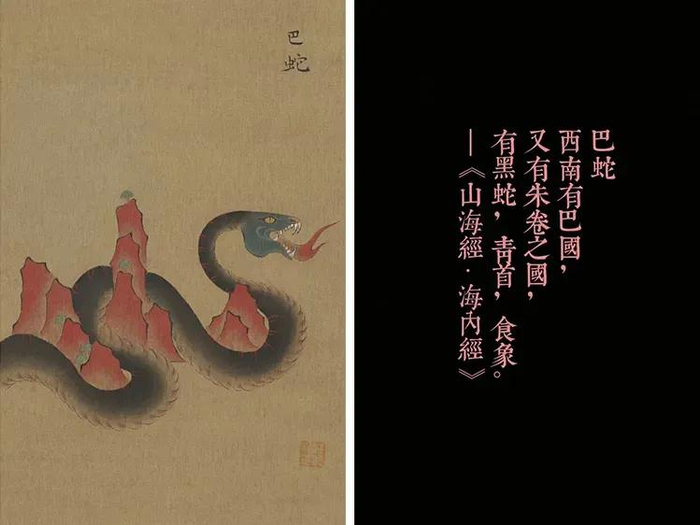 巴
蛇
巴蛇
西南有巴國，
又有朱卷之國，
有黑蛇，靑首，食象。
—《山海經·海內經》